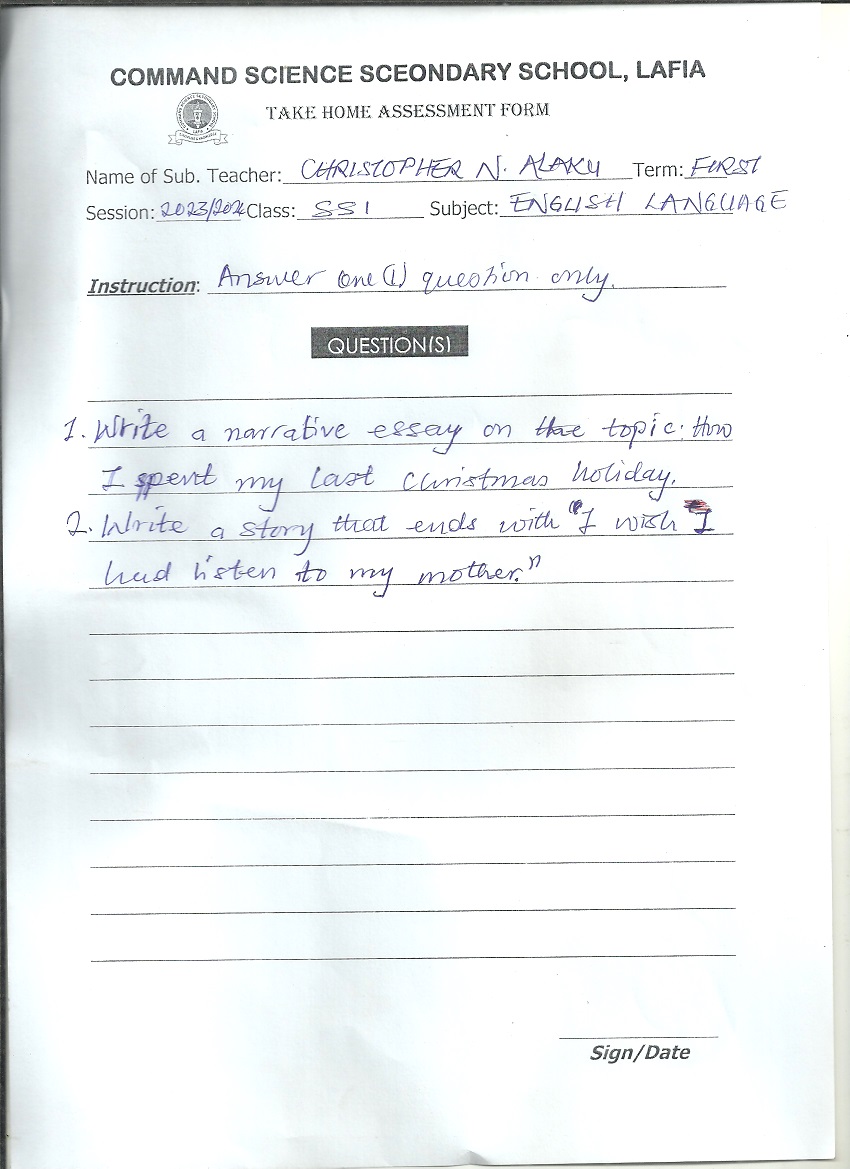 COMMAND SCIENCE SCEONDARY SCHOOL, LAFIA
TAKE HOME ASSESSMENT FORM
Name of Sub. Teacher: CHRISTOPHER N. ALAKU Term: FIRST
Session: 2023/2024 Class: SS1 Subject: ENGLISH LANGUAGE
Instruction: Answer one (1) question only.
QUESTION(S)
1. Write a narrative essay on the topic: How
I spent my last christmas holiday.
2. Write a story that ends with "I wish I
had listen to my mother."
Sign/Date